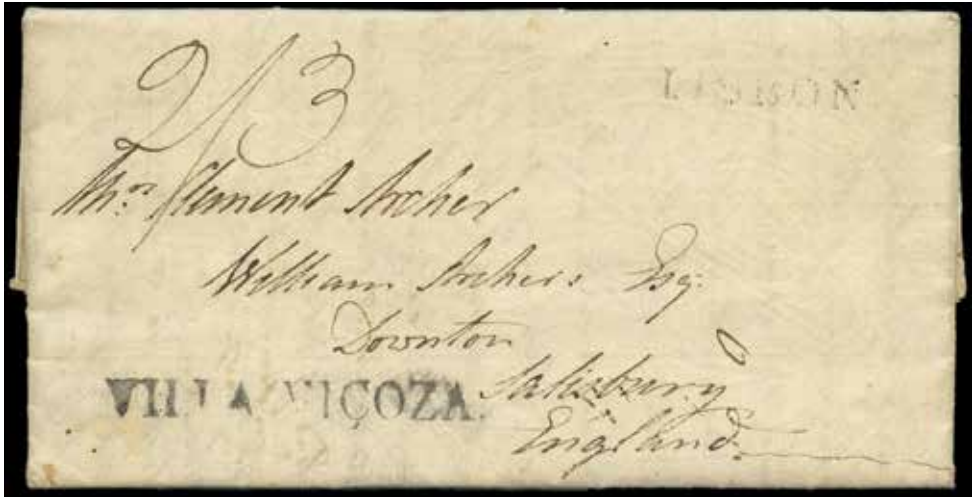 2/3
LISBON
Mrs. Clement Archer
William Archers Esq.
Downton
Salisbury
England
VILLA VIÇOZA.